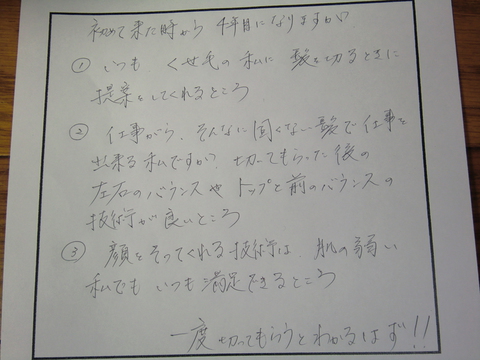 初めて来た時から 4年目になりますが
① いつも くせ毛の私に 髪を切るときに
提案をしてくれるところ
② 仕事がら、そんなに固くない髪で仕事を
出来る私ですが、切ってもらった後の
左右のバランスや トップと前のバランスの
技術が良いところ
③ 顔をそってくれる技術は、肌の弱い
私でも いつも満足できるところ
一度切ってもらうとわかるはず!!